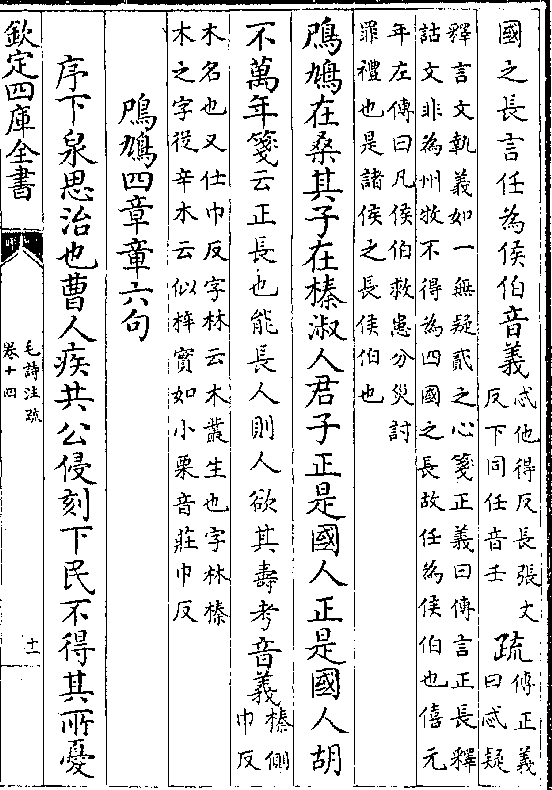 國之長言任為侯伯音義忒他得反長張丈反下同任音壬疏傳正義曰忒疑
釋言文執義如一無疑貳之心箋正義曰傳言正長釋
詁文非為州牧不得為四國之長故任為侯伯也僖元
年左傳曰凡侯伯救患分災討
罪禮也是諸侯之長侯伯也
鳲鳩在桑其子在榛淑人君子正是國人正是國人胡
不萬年箋云正長也能長人則人欲其壽考音義榛側巾反
木名也又仕巾反字林云木叢生也字林榛
木之字從辛木云似梓實如小栗音莊巾反
鳲鳩四章章六句
序下泉思治也曹人疾共公侵刻下民不得其所憂
欽定四庫全書
毛詩注疏
卷十四
十一